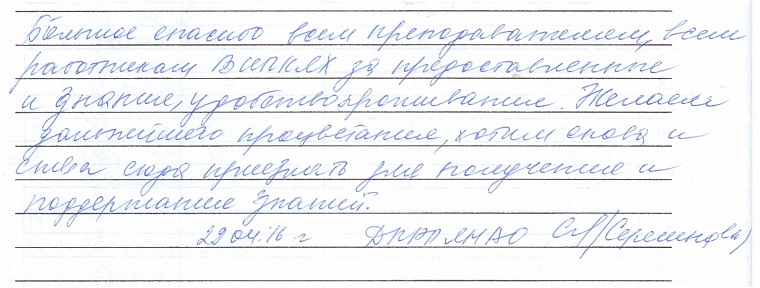 Большое спасибо всем преподавателям, всем
работникам ВИПКЛХ за предоставленные
и знание, удобство проживания. Желаем
дальнейшего процветания, хотим снова и
снова сюда приезжать для получение и
поддержание знаний.
29.04.16 г